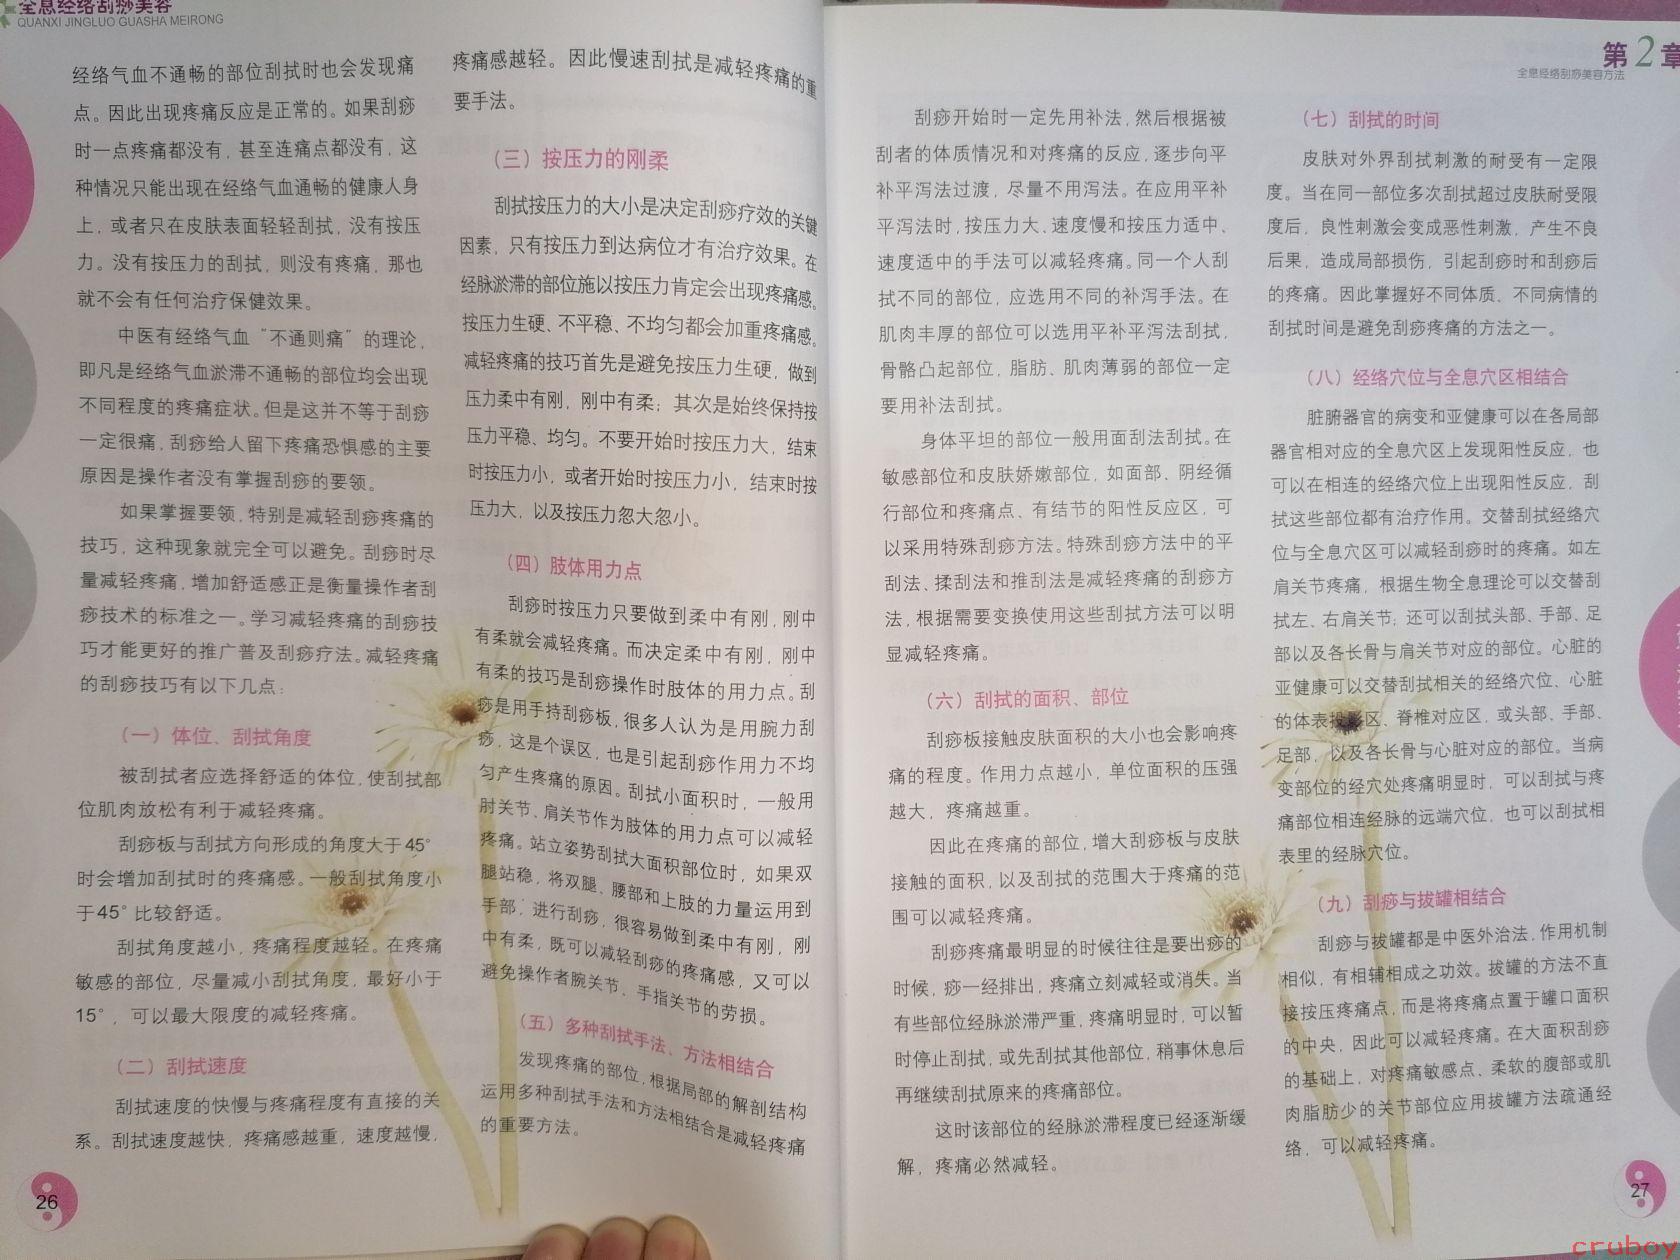 全息经络刮痧美容
QUANXI JINGLUO GUASHA MEIRONG
经络气血不通畅的部位刮拭时也会发现痛
点。因此出现疼痛反应是正常的。如果刮痧
时一点疼痛都没有，甚至连痛点都没有，这
种情况只能出现在经络气血通畅的健康人身
上，或者只在皮肤表面轻轻刮拭，没有按压
力。没有按压力的刮拭，则没有疼痛，那也
就不会有任何治疗保健效果。
中医有经络气血“不通则痛”的理论，
即凡是经络气血淤滞不通畅的部位均会出现
不同程度的疼痛症状。但是这并不等于刮痧
一定很痛，刮痧给人留下疼痛恐惧感的主要
原因是操作者没有掌握刮痧的要领。
如果掌握要领，特别是减轻刮痧疼痛的
技巧，这种现象就完全可以避免。刮痧时尽
量减轻疼痛，增加舒适感正是衡量操作者刮
痧技术的标准之一。学习减轻疼痛的刮痧技
巧才能更好的推广普及刮痧疗法。减轻疼痛
的刮痧技巧有以下几点：
（一）体位、刮拭角度
被刮拭者应选择舒适的体位，使刮拭部
位肌肉放松有利于减轻疼痛。
刮痧板与刮拭方向形成的角度大于45°
时会增加刮拭时的疼痛感。一般刮拭角度小
于45°比较舒适。
刮拭角度越小，疼痛程度越轻。在疼痛
敏感的部位，尽量减小刮拭角度，最好小于
15°，可以最大限度的减轻疼痛。
（二）刮拭速度
刮拭速度的快慢与疼痛程度有直接的关
系。刮拭速度越快，疼痛感越重，速度越慢，
疼痛感越轻。因此慢速刮拭是减轻疼痛的重
要手法。
（三）按压力的刚柔
刮拭按压力的大小是决定刮痧疗效的关键
因素，只有按压力到达病位才有治疗效果。在
经脉淤滞的部位施以按压力肯定会出现疼痛感。
按压力生硬、不平稳、不均匀都会加重疼痛感。
减轻疼痛的技巧首先是避免按压力生硬，做到
压力柔中有刚，刚中有柔；其次是始终保持按
压力平稳、均匀。不要开始时按压力大，结束
时按压力小，或者开始时按压力小，结束时按
压力大，以及按压力忽大忽小。
（四）肢体用力点
刮痧时按压力只要做到柔中有刚，刚中
有柔就会减轻疼痛。而决定柔中有刚，刚中
有柔的技巧是刮痧操作时肢体的用力点。刮
痧是用手持刮痧板，很多人认为是用腕力刮
痧，这是个误区，也是引起刮痧作用力不均
匀产生疼痛的原因。刮拭小面积时，一般用
肘关节、肩关节作为肢体的用力点可以减轻
疼痛。站立姿势刮拭大面积部位时，如果双
腿站稳，将双腿、腰部和上肢的力量运用到
手部，进行刮痧，很容易做到柔中有刚，刚
中有柔，既可以减轻刮痧的疼痛感，又可以
避免操作者腕关节、手指关节的劳损。
（五）多种刮拭手法、方法相结合
发现疼痛的部位，根据局部的解剖结构
运用多种刮拭手法和方法相结合是减轻疼痛
的重要方法。
26
第2章
全息经络刮痧美容方法
刮痧开始时一定先用补法，然后根据被
刮者的体质情况和对疼痛的反应，逐步向平
补平泻法过渡，尽量不用泻法。在应用平补
平泻法时，按压力大、速度慢和按压力适中、
速度适中的手法可以减轻疼痛。同一个人刮
拭不同的部位，应选用不同的补泻手法。在
肌肉丰厚的部位可以选用平补平泻法刮拭，
骨骼凸起部位，脂肪、肌肉薄弱的部位一定
要用补法刮拭。
身体平坦的部位一般用面刮法刮拭。在
敏感部位和皮肤娇嫩部位，如面部、阴经循
行部位和疼痛点、有结节的阳性反应区，可
以采用特殊刮痧方法。特殊刮痧方法中的平
刮法、揉刮法和推刮法是减轻疼痛的刮痧方
法，根据需要变换使用这些刮拭方法可以明
显减轻疼痛。
（六）刮拭的面积、部位
刮痧板接触皮肤面积的大小也会影响疼
痛的程度。作用力点越小，单位面积的压强
越大，疼痛越重。
因此在疼痛的部位，增大刮痧板与皮肤
接触的面积，以及刮拭的范围大于疼痛的范
围可以减轻疼痛。
刮痧疼痛最明显的时候往往是要出痧的
时候，痧一经排出，疼痛立刻减轻或消失。当
有些部位经脉淤滞严重，疼痛明显时，可以暂
时停止刮拭，或先刮拭其他部位，稍事休息后
再继续刮拭原来的疼痛部位。
这时该部位的经脉淤滞程度已经逐渐缓
解，疼痛必然减轻。
（七）刮拭的时间
皮肤对外界刮拭刺激的耐受有一定限
度。当在同一部位多次刮拭超过皮肤耐受限
度后，良性刺激会变成恶性刺激，产生不良
后果，造成局部损伤，引起刮痧时和刮痧后
的疼痛。因此掌握好不同体质、不同病情的
刮拭时间是避免刮痧疼痛的方法之一。
（八）经络穴位与全息穴区相结合
脏腑器官的病变和亚健康可以在各局部
器官相对应的全息穴区上发现阳性反应，也
可以在相连的经络穴位上出现阳性反应，刮
拭这些部位都有治疗作用。交替刮拭经络穴
位与全息穴区可以减轻刮痧时的疼痛。如左
肩关节疼痛，根据生物全息理论可以交替刮
拭左、右肩关节；还可以刮拭头部、手部、足
部以及各长骨与肩关节对应的部位。心脏的
亚健康可以交替刮拭相关的经络穴位、心脏
的体表投影区、脊椎对应区，或头部、手部、
足部，以及各长骨与心脏对应的部位。当病
变部位的经穴处疼痛明显时，可以刮拭与疼
痛部位相连经脉的远端穴位，也可以刮拭相
表里的经脉穴位。
（九）刮痧与拔罐相结合
刮痧与拔罐都是中医外治法，作用机制
相似，有相辅相成之功效。拔罐的方法不直
接按压疼痛点，而是将疼痛点置于罐口面积
的中央，因此可以减轻疼痛。在大面积刮痧
的基础上，对疼痛敏感点、柔软的腹部或肌
肉脂肪少的关节部位应用拔罐方法疏通经
络，可以减轻疼痛。
27
cruboy